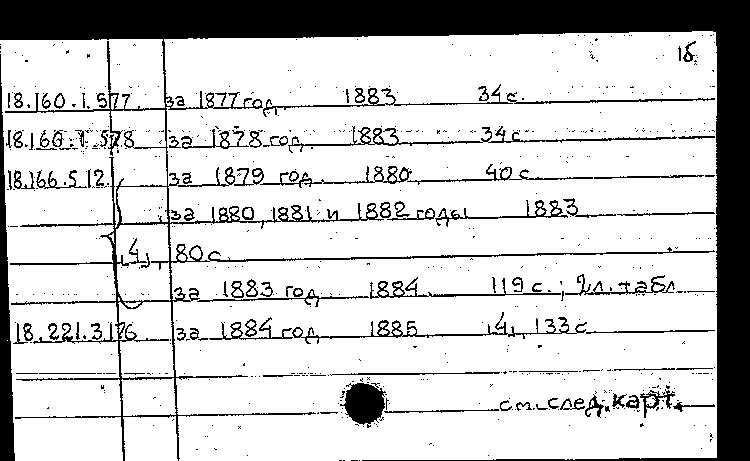 15
18.160.1.577 за 1877 год. 1883 34 с.
18.160.1.578 за 1878 год. 1883 34 с
18.166.5.12. за 1879 год. 1880 40 с
за 1880, 1881 и 1882 годы 1883
|4|, 80 с.
за 1883 год 1884. 119 с.; 2 л. табл
18.221.3.176 за 1884 год 1885 |4|, 133 с.
см. след. карт.